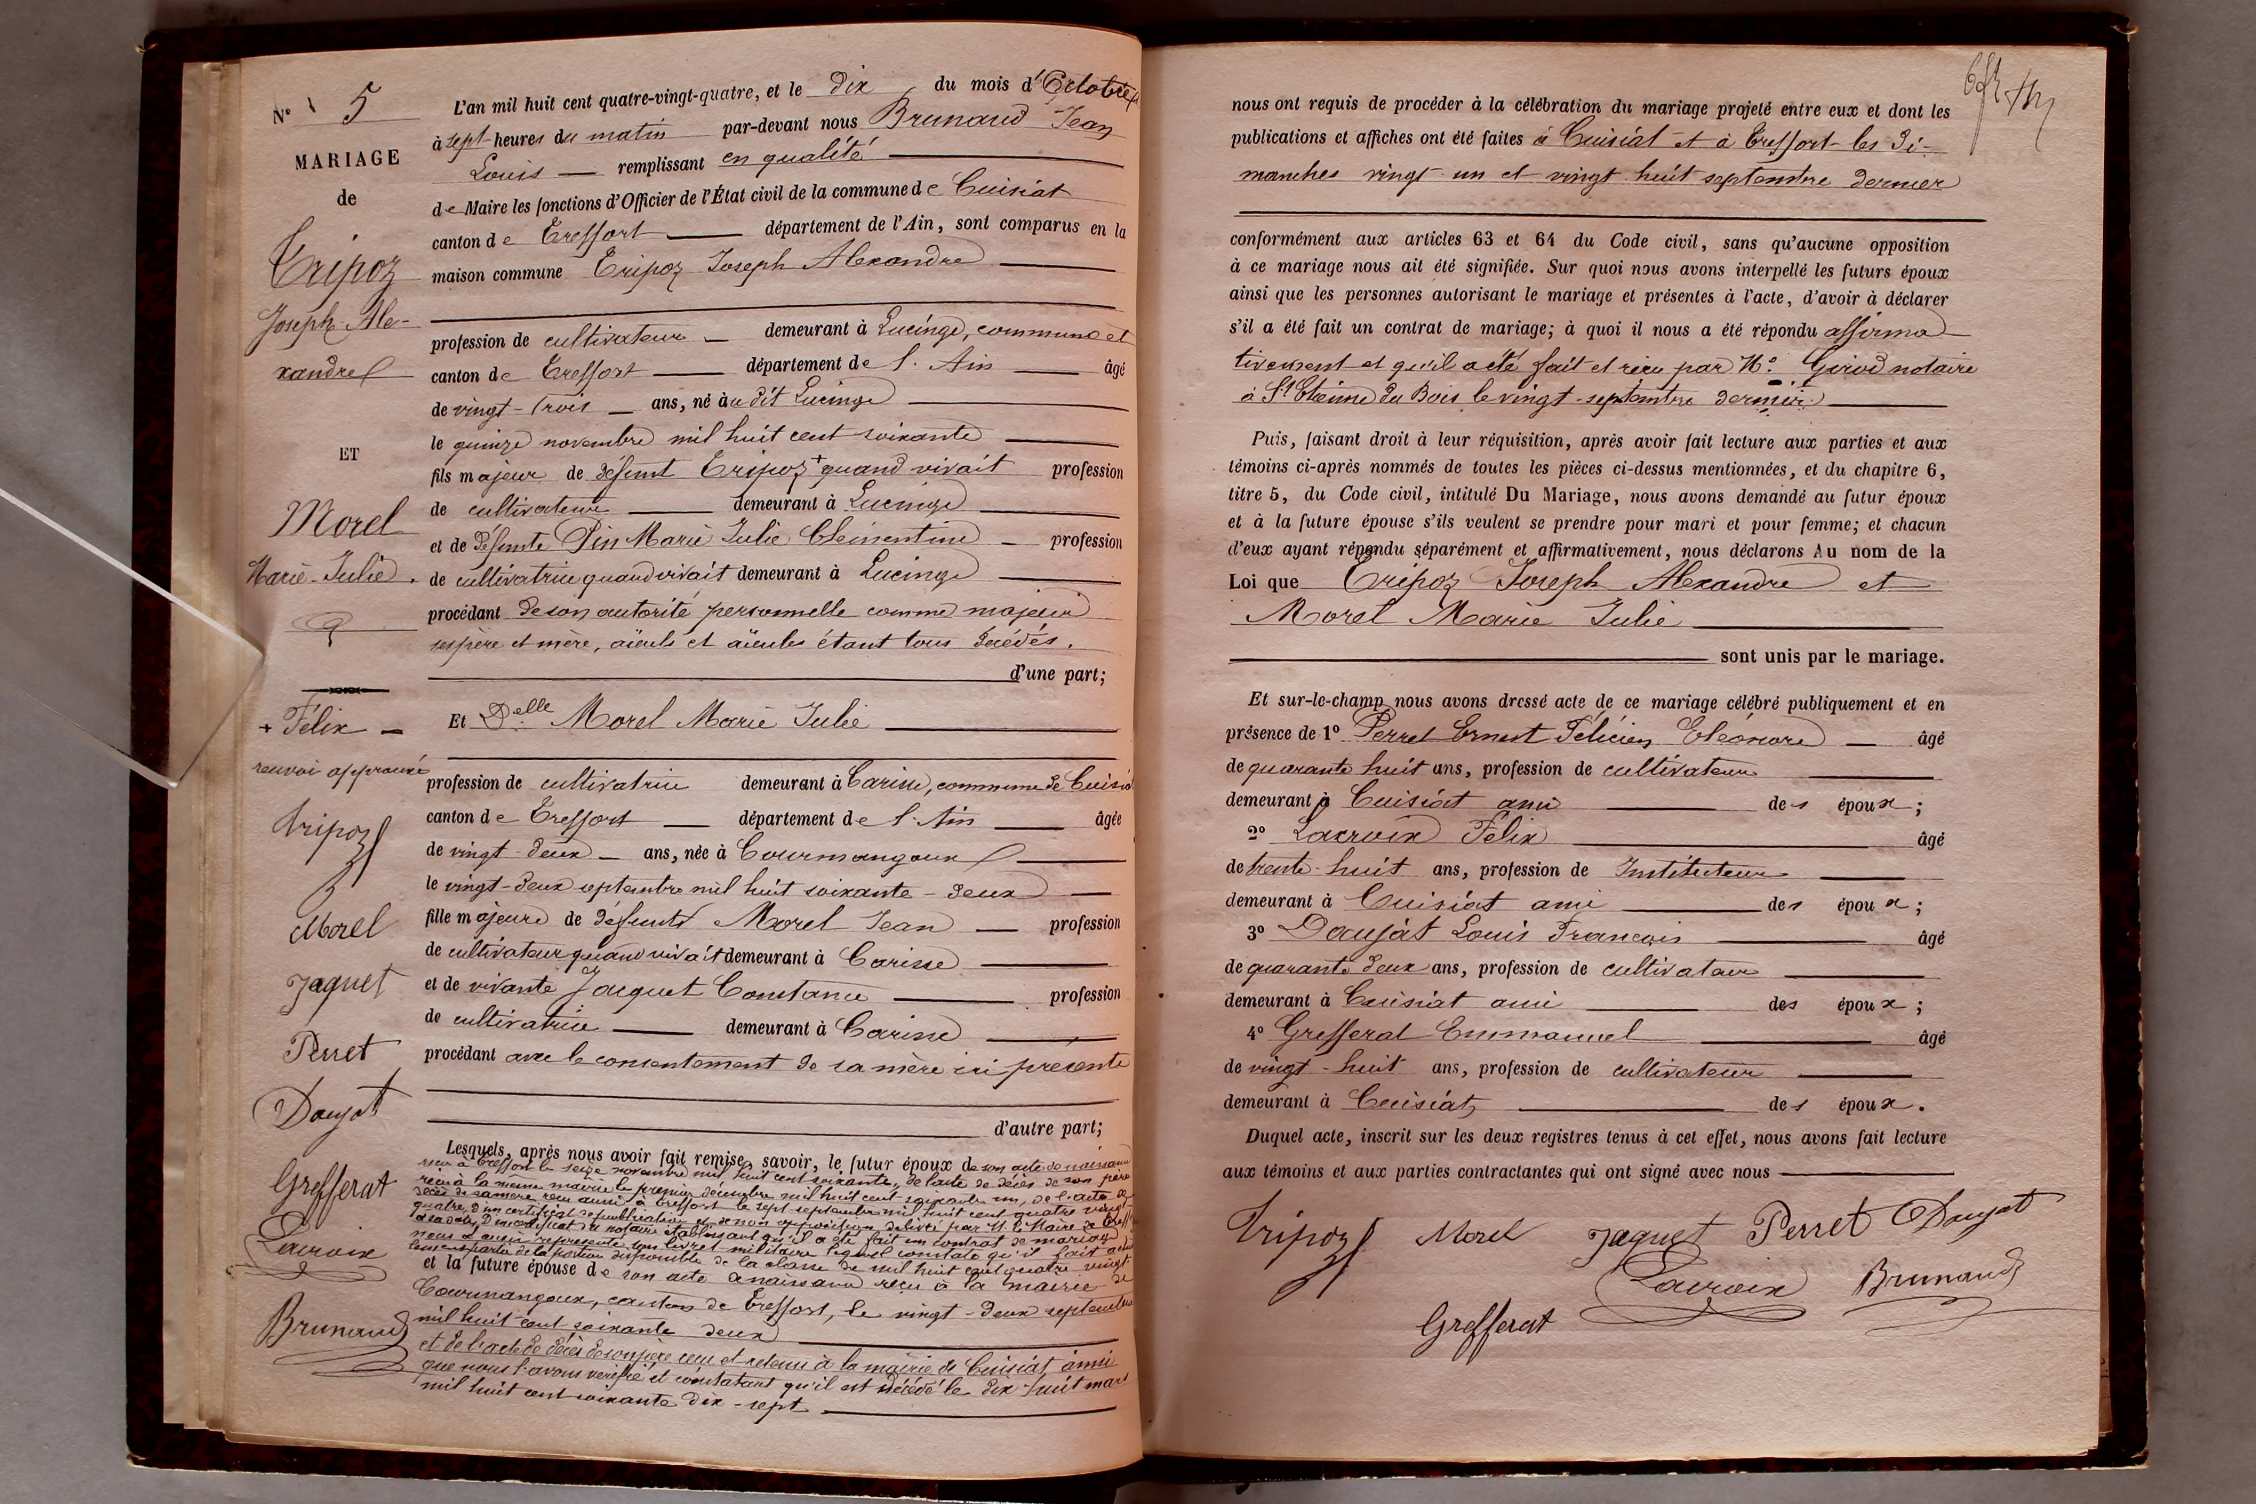 N° 5
MARIAGE
de
Tripoz
Joseph Ale-
xandre
ET
Morel
Marie Julie.
+ Félix —
renvoi approuvé
Tripoz
Morel
Jaquet
Perret
Doujat
Grefferat
Lacroix
Brunaud
L'an mil huit cent quatre-vingt-quatre, et le dix du mois d'Octobre
à sept heures du matin par-devant nous Brunaud Jean
Louis — remplissant en qualité
de Maire les fonctions d'Officier de l'État civil de la commune de Cuisiat
canton de Treffort — département de l'Ain, sont comparus en la
maison commune Tripoz Joseph Alexandre
profession de cultivateur — demeurant à Lucinge, commune et
canton de Treffort — département de l'Ain — âgé
de vingt-trois — ans, né au dit Lucinge
le quinze novembre mil huit cent soixante
fils majeur de défunt Tripoz + quand vivait profession
de cultivateur — demeurant à Lucinge
et de défunte Pin Marie Julie Clémentine — profession
de cultivatrice quand vivait demeurant à Lucinge
procédant de son autorité personnelle comme majeur
ses père et mère, aïeuls et aïeules étant tous décédés.
d'une part;
Et Delle Morel Marie Julie
profession de cultivatrice demeurant à Carisse, commune de Cuisiat
canton de Treffort — département de l'Ain — âgée
de vingt-deux — ans, née à Courmangoux
le vingt-deux septembre mil huit soixante-deux
fille majeure de défunt Morel Jean — profession
de cultivateur quand vivait demeurant à Carisse
et de vivante Jacquet Constance — profession
de cultivatrice — demeurant à Carisse
procédant avec le consentement de sa mère ici présente
d'autre part;
Lesquels, après nous avoir fait remise, savoir, le futur époux de son acte de naissance
reçu à Treffort le seize novembre mil huit cent soixante, de l'acte de décès de son père
reçu à la même mairie le premier décembre mil huit cent soixante un, de l'acte de
décès de sa mère reçu aussi à Treffort le sept septembre mil huit cent quatre vingt
quatre, d'un certificat de publication et de non opposition délivré par M. le Maire de Treffort
d'un certificat du notaire établissant qu'il a été fait un contrat de mariage
nous a aussi représenté son livret militaire lequel constate qu'il fait
partie de la portion disponible de la classe de mil huit cent quatre vingt
et la future épouse de son acte de naissance reçu à la mairie de
Courmangoux, canton de Treffort, le vingt-deux septembre
mil huit cent soixante deux
et de l'acte de décès de son père reçu et retenu à la mairie de Cuisiat, ainsi
que nous l'avons vérifié et constatant qu'il est décédé le dix-huit mars
mil huit cent soixante dix-sept
nous ont requis de procéder à la célébration du mariage projeté entre eux et dont les
publications et affiches ont été faites à Cuisiat et à Treffort les di-
manches vingt un et vingt huit septembre dernier
conformément aux articles 63 et 64 du Code civil, sans qu'aucune opposition
à ce mariage nous ait été signifiée. Sur quoi nous avons interpellé les futurs époux
ainsi que les personnes autorisant le mariage et présentes à l'acte, d'avoir à déclarer
s'il a été fait un contrat de mariage; à quoi il nous a été répondu affirma-
tivement et qu'il a été fait et reçu par Me. Girod notaire
à St Etienne du Bois le vingt septembre dernier
Puis, faisant droit à leur réquisition, après avoir fait lecture aux parties et aux
témoins ci-après nommés de toutes les pièces ci-dessus mentionnées, et du chapitre 6,
titre 5, du Code civil, intitulé Du Mariage, nous avons demandé au futur époux
et à la future épouse s'ils veulent se prendre pour mari et pour femme; et chacun
d'eux ayant répondu séparément et affirmativement, nous déclarons Au nom de la
Loi que Tripoz Joseph Alexandre et
Morel Marie Julie
sont unis par le mariage.
Et sur-le-champ nous avons dressé acte de ce mariage célébré publiquement et en
présence de 1° Perret Ernest Félicien Eléonore — âgé
de quarante huit ans, profession de cultivateur
demeurant à Cuisiat ami — des époux;
2° Lacroix Félix — âgé
de trente-huit ans, profession de Instituteur
demeurant à Cuisiat ami — des époux;
3° Doujat Louis François — âgé
de quarante deux ans, profession de cultivateur
demeurant à Cuisiat ami — des époux;
4° Grefferat Emmanuel — âgé
de vingt-huit ans, profession de cultivateur
demeurant à Cuisiat — des époux.
Duquel acte, inscrit sur les deux registres tenus à cet effet, nous avons fait lecture
aux témoins et aux parties contractantes qui ont signé avec nous
Tripoz Morel Jaquet Perret Doujat
Lacroix Brunaud
Grefferat